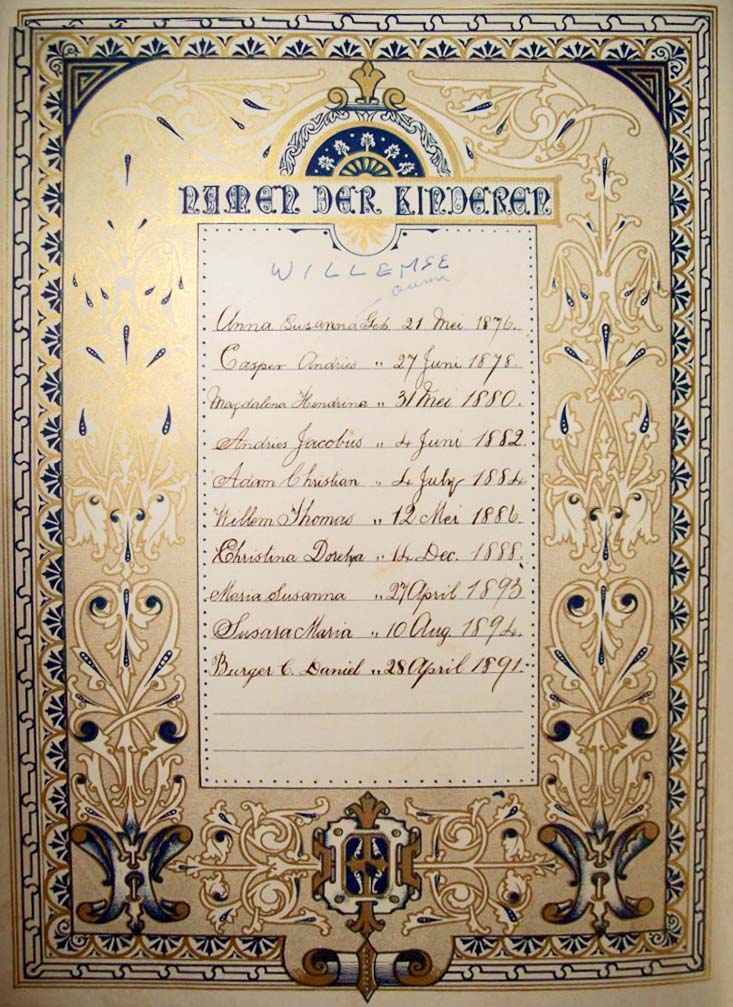 NAMEN DER KINDEREN
WILLEMSE
Anna Susanna Geb. 21 Mei 1876.
Casper Andries " 27 Juni 1878
Magdalena Hendrina " 31 Mei 1880.
Andries Jacobus " 4 Juni 1882.
Adam Christian " 4 July 1884
Willem Thomas " 12 Mei 1886.
Christina Doretya " 14 Dec. 1888.
Maria Susanna " 27 April 1893
Susara Maria " 10 Aug 1894.
Burger C. Daniel " 28 April 1891.